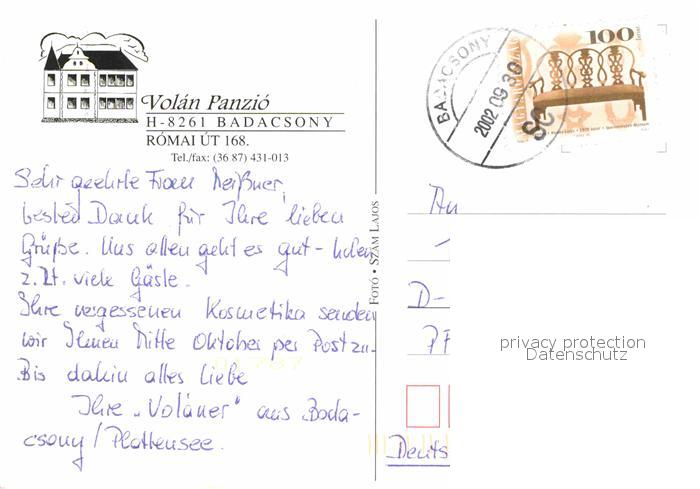 Volán Panzió
H-8261 BADACSONY
RÓMAI ÚT 168.
Tel./fax: (36 87) 431-013
Sehr geehrte Frau Meißner,
besten Dank für Ihre lieben
Grüße. Uns allen geht es gut - haben
z. Zt. viele Gäste.
Ihre vergessenen Kosmetika senden
wir Ihnen Mitte Oktober per Post zu.
Bis dahin alles Liebe
Ihre "Voláner" aus Bada-
csony / Plattensee.
FOTÓ • SZÁM LAJOS
BADACSONY
2002 09 30
100
An
D-
Deuts
privacy protection
Datenschutz